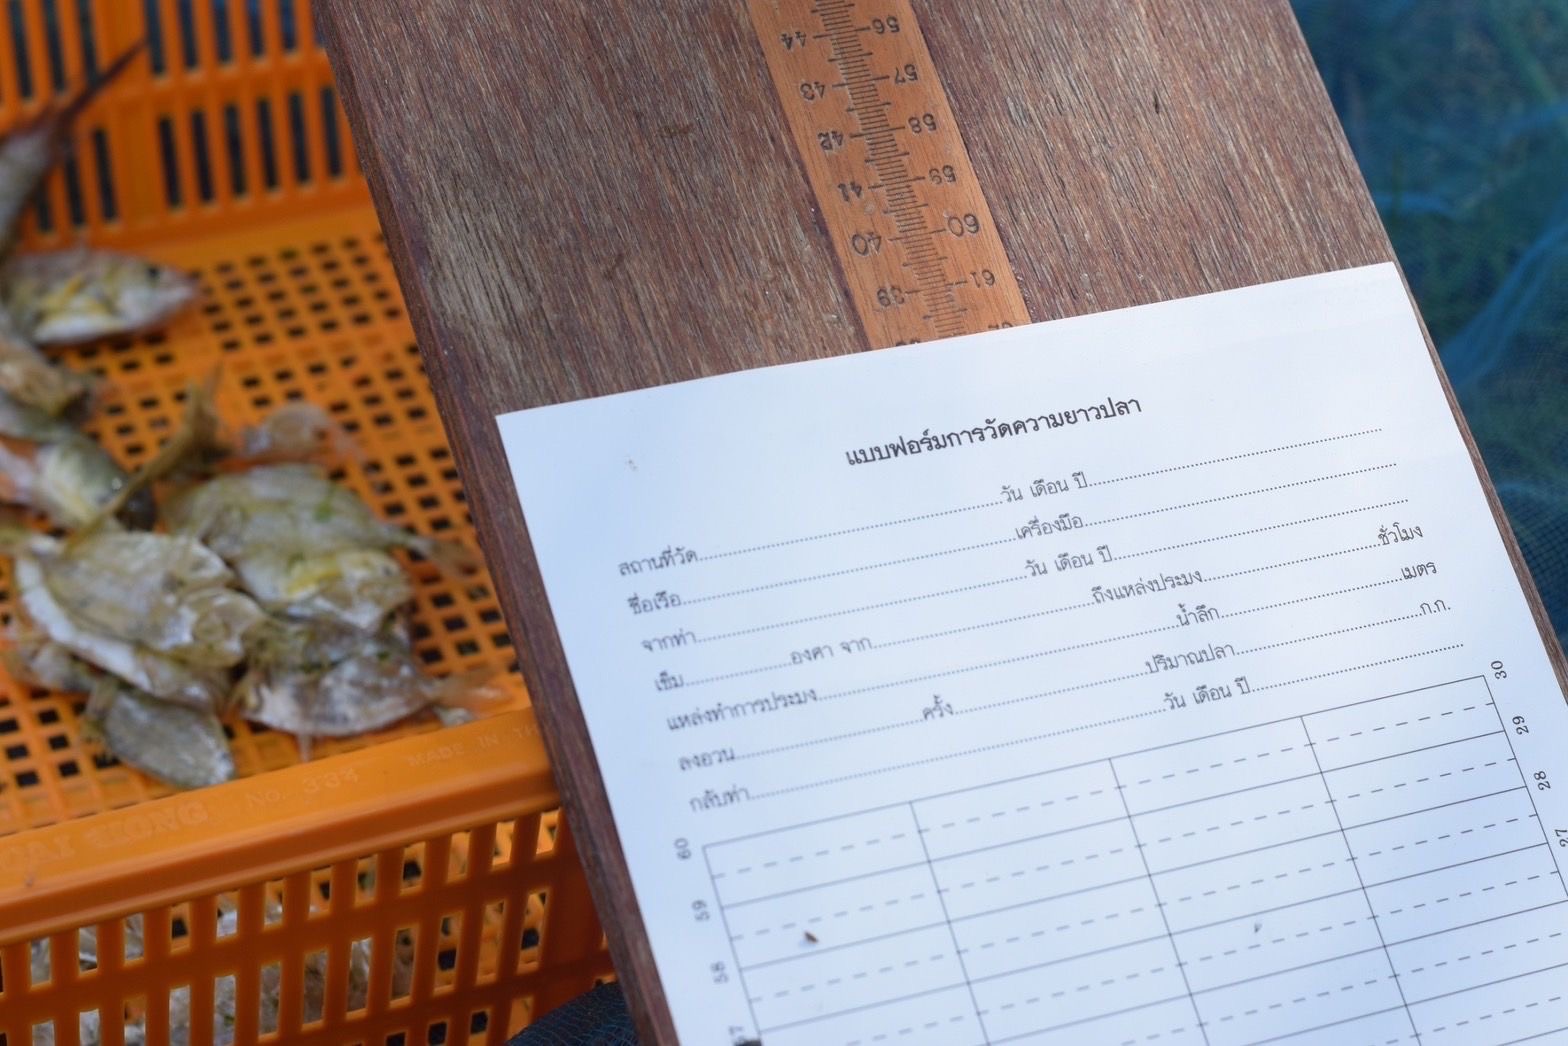 44 56
43 57
42 58
41 59
40 60
39 61
แบบฟอร์มการวัดความยาวปลา
สถานที่วัด........................วัน เดือน ปี........................
ชื่อเรือ........................เครื่องมือ........................
จากท่า........................วัน เดือน ปี........................
เข็ม............องศา จาก........................ถึงแหล่งประมง........................ชั่วโมง
แหล่งทำการประมง........................น้ำลึก........................เมตร
ลงอวน........................ครั้ง........................ปริมาณปลา........................ก.ก.
กลับท่า........................วัน เดือน ปี........................
60 30
59 29
58 28
57 27
No. 338 MADE IN